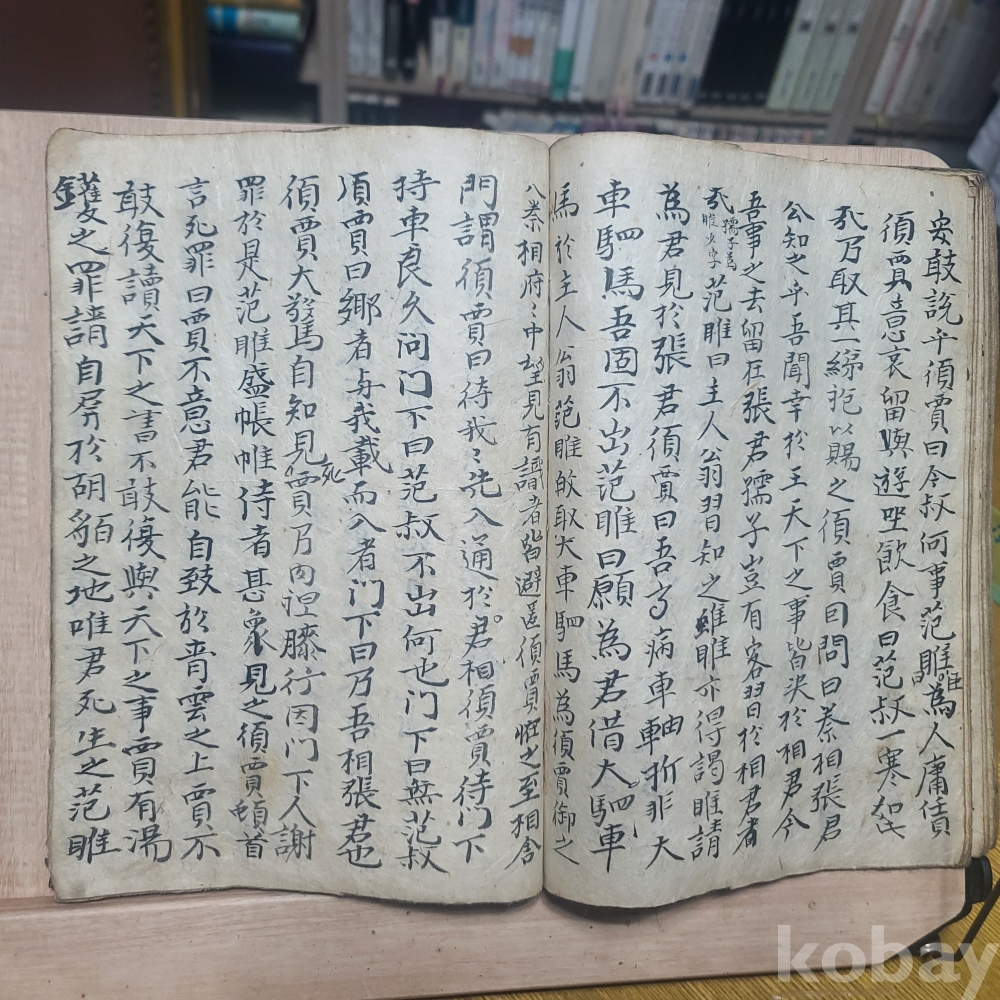 安敢說乎須賈曰今叔何事范睢爲人庸賃
須賈意哀留與遊坐飲食曰范叔一寒如此
㢤乃取其一綈袍以賜之須賈曰問曰秦相張君
公知之乎吾聞幸於王天下之事皆決於相君今
吾事之去留在張君孺子豈有客習於相君者
㢤范睢曰主人翁習知之雖睢亦得謁睢請
爲君見於張君須賈曰吾馬病車軸折非大
車駟馬吾固不出范睢曰願爲君借大駟車
馬於主人翁范睢敀取大車駟馬爲須賈御之
入秦相府〻中望見有識者皆避匿須賈怪之至相舍
門謂須賈曰待我〻先入通於君相須賈待門下
持車良久问门下曰范叔不出何也门下曰無范叔
須賈曰鄕者与我載而入者门下曰乃吾相張君也
須賈大驚自知見賈乃肉袒膝行因门下人謝
死
罪於是范睢盛帳帷侍者甚衆見之須賈頓首
言死罪曰賈不意君能自致於靑雲之上賈不
敢復讀天下之書不敢復與天下之事賈有湯
鑊之罪請自屛於胡貉之地唯君死生之范睢
kobay